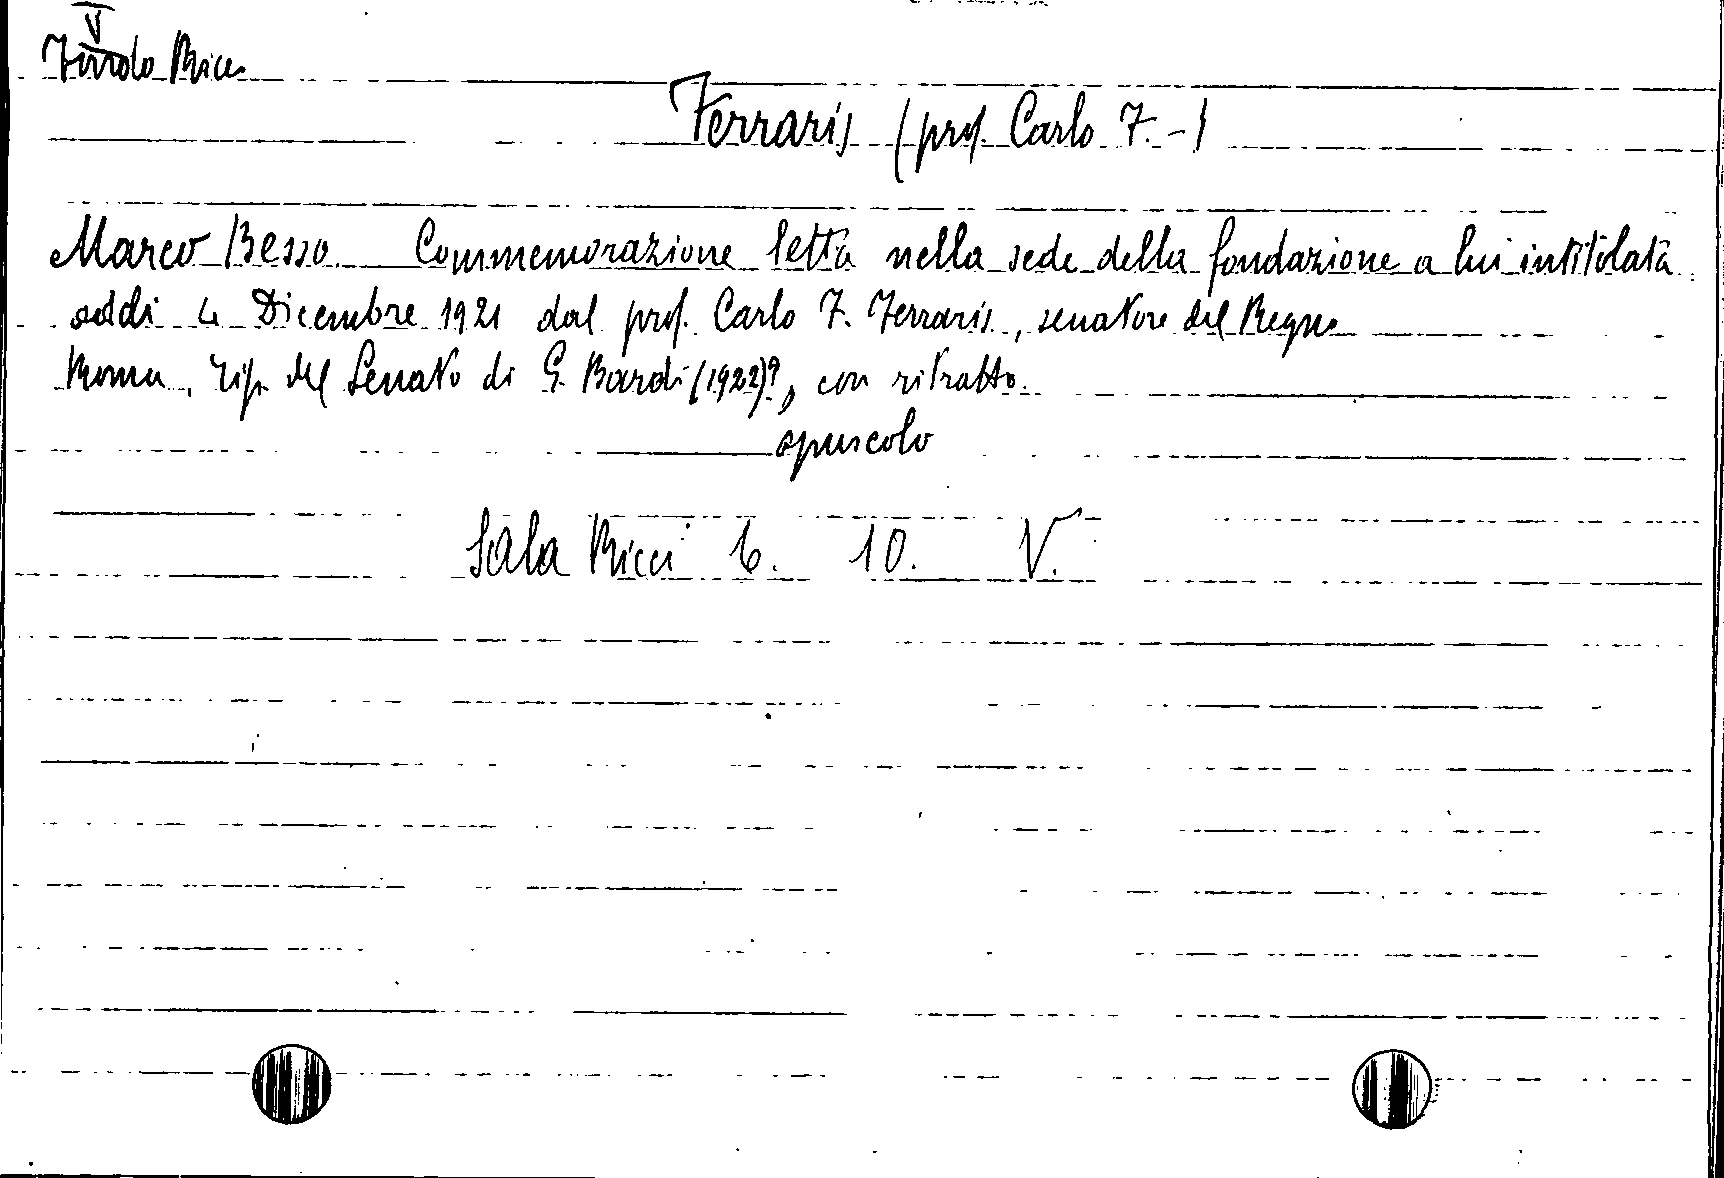 V
Fondo Ricci
Ferraris (prof. Carlo F.-)
Marco Besso. Commemorazione letta nella sede della fondazione a lui intitolata
addi 4 Dicembre 1921 dal prof. Carlo F. Ferraris, senatore del Regno
Roma, tip. del Senato di G. Bardi (1922)?, con ritratto.
opuscolo
Sala Ricci 6. 10. V.